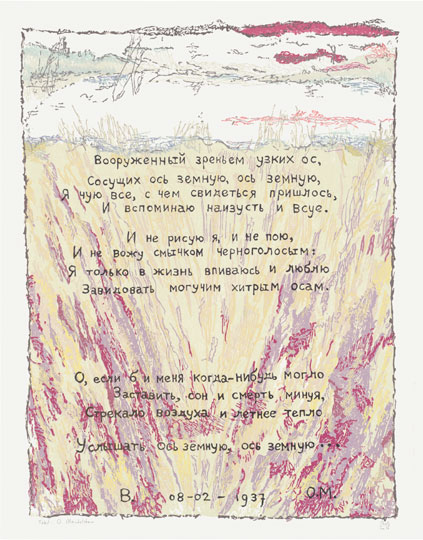 Вооруженный зреньем узких ос,
Сосущих ось земную, ось земную,
Я чую все, с чем свидеться пришлось,
И вспоминаю наизусть и всуе.
И не рисую я, и не пою,
И не вожу смычком черноголосым:
Я только в жизнь впиваюсь и люблю
Завидовать могучим хитрым осам.
О, если б и меня когда-нибудь могло
Заставить, сон и смерть минуя,
Стрекало воздуха и летнее тепло
Услышать ось земную, ось земную...
В. 08-02-1937 О.М.